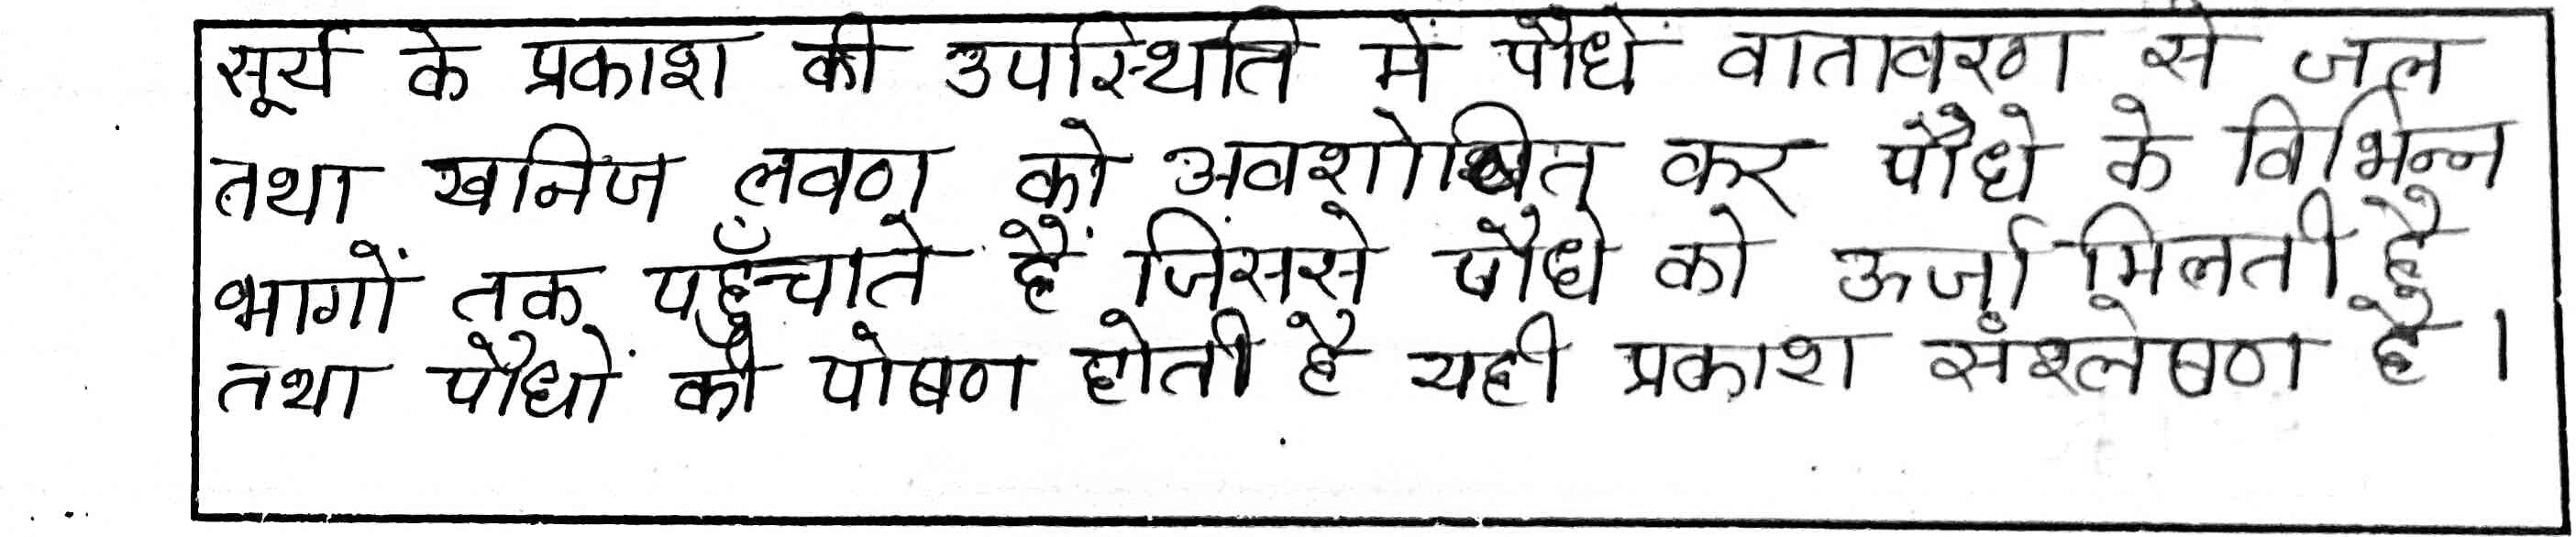 सूर्य के प्रकाश की उपस्थिति में पौधें वातावरण से जल
तथा खनिज लवण को अवशोषित कर पौधे के विभिन्न
भागों तक पहुँचाते हैं जिससे पौधे को ऊर्जा मिलती है
तथा पौधों की पोषण होती है यही प्रकाश संश्लेषण है।